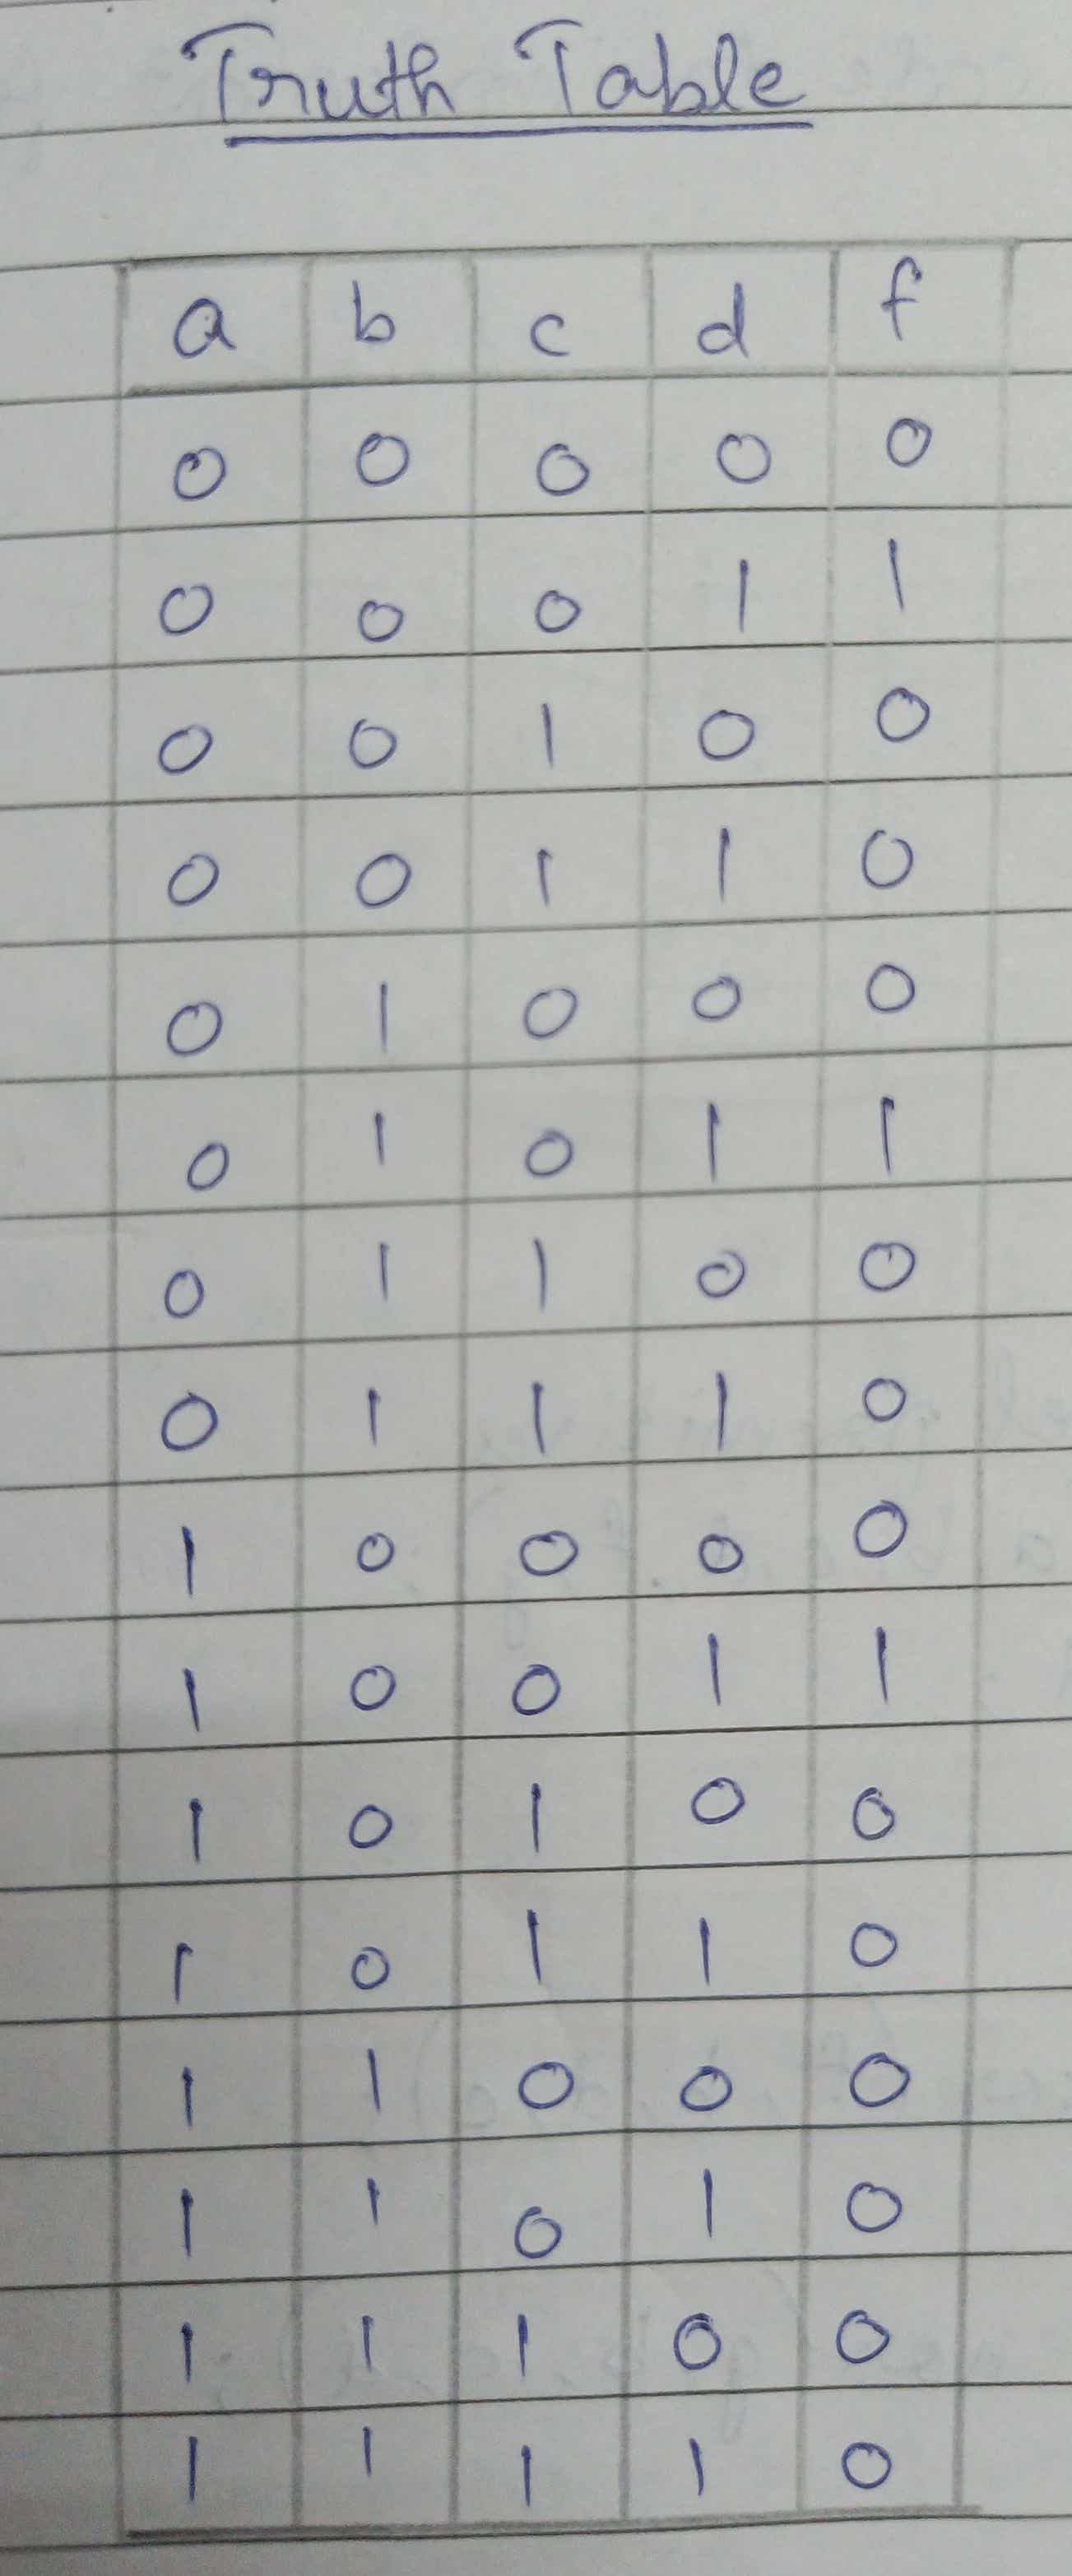 Truth Table
a b c d f
0 0 0 0 0
0 0 0 1 1
0 0 1 0 0
0 0 1 1 0
0 1 0 0 0
0 1 0 1 1
0 1 1 0 0
0 1 1 1 0
1 0 0 0 0
1 0 0 1 1
1 0 1 0 0
1 0 1 1 0
1 1 0 0 0
1 1 0 1 0
1 1 1 0 0
1 1 1 1 0